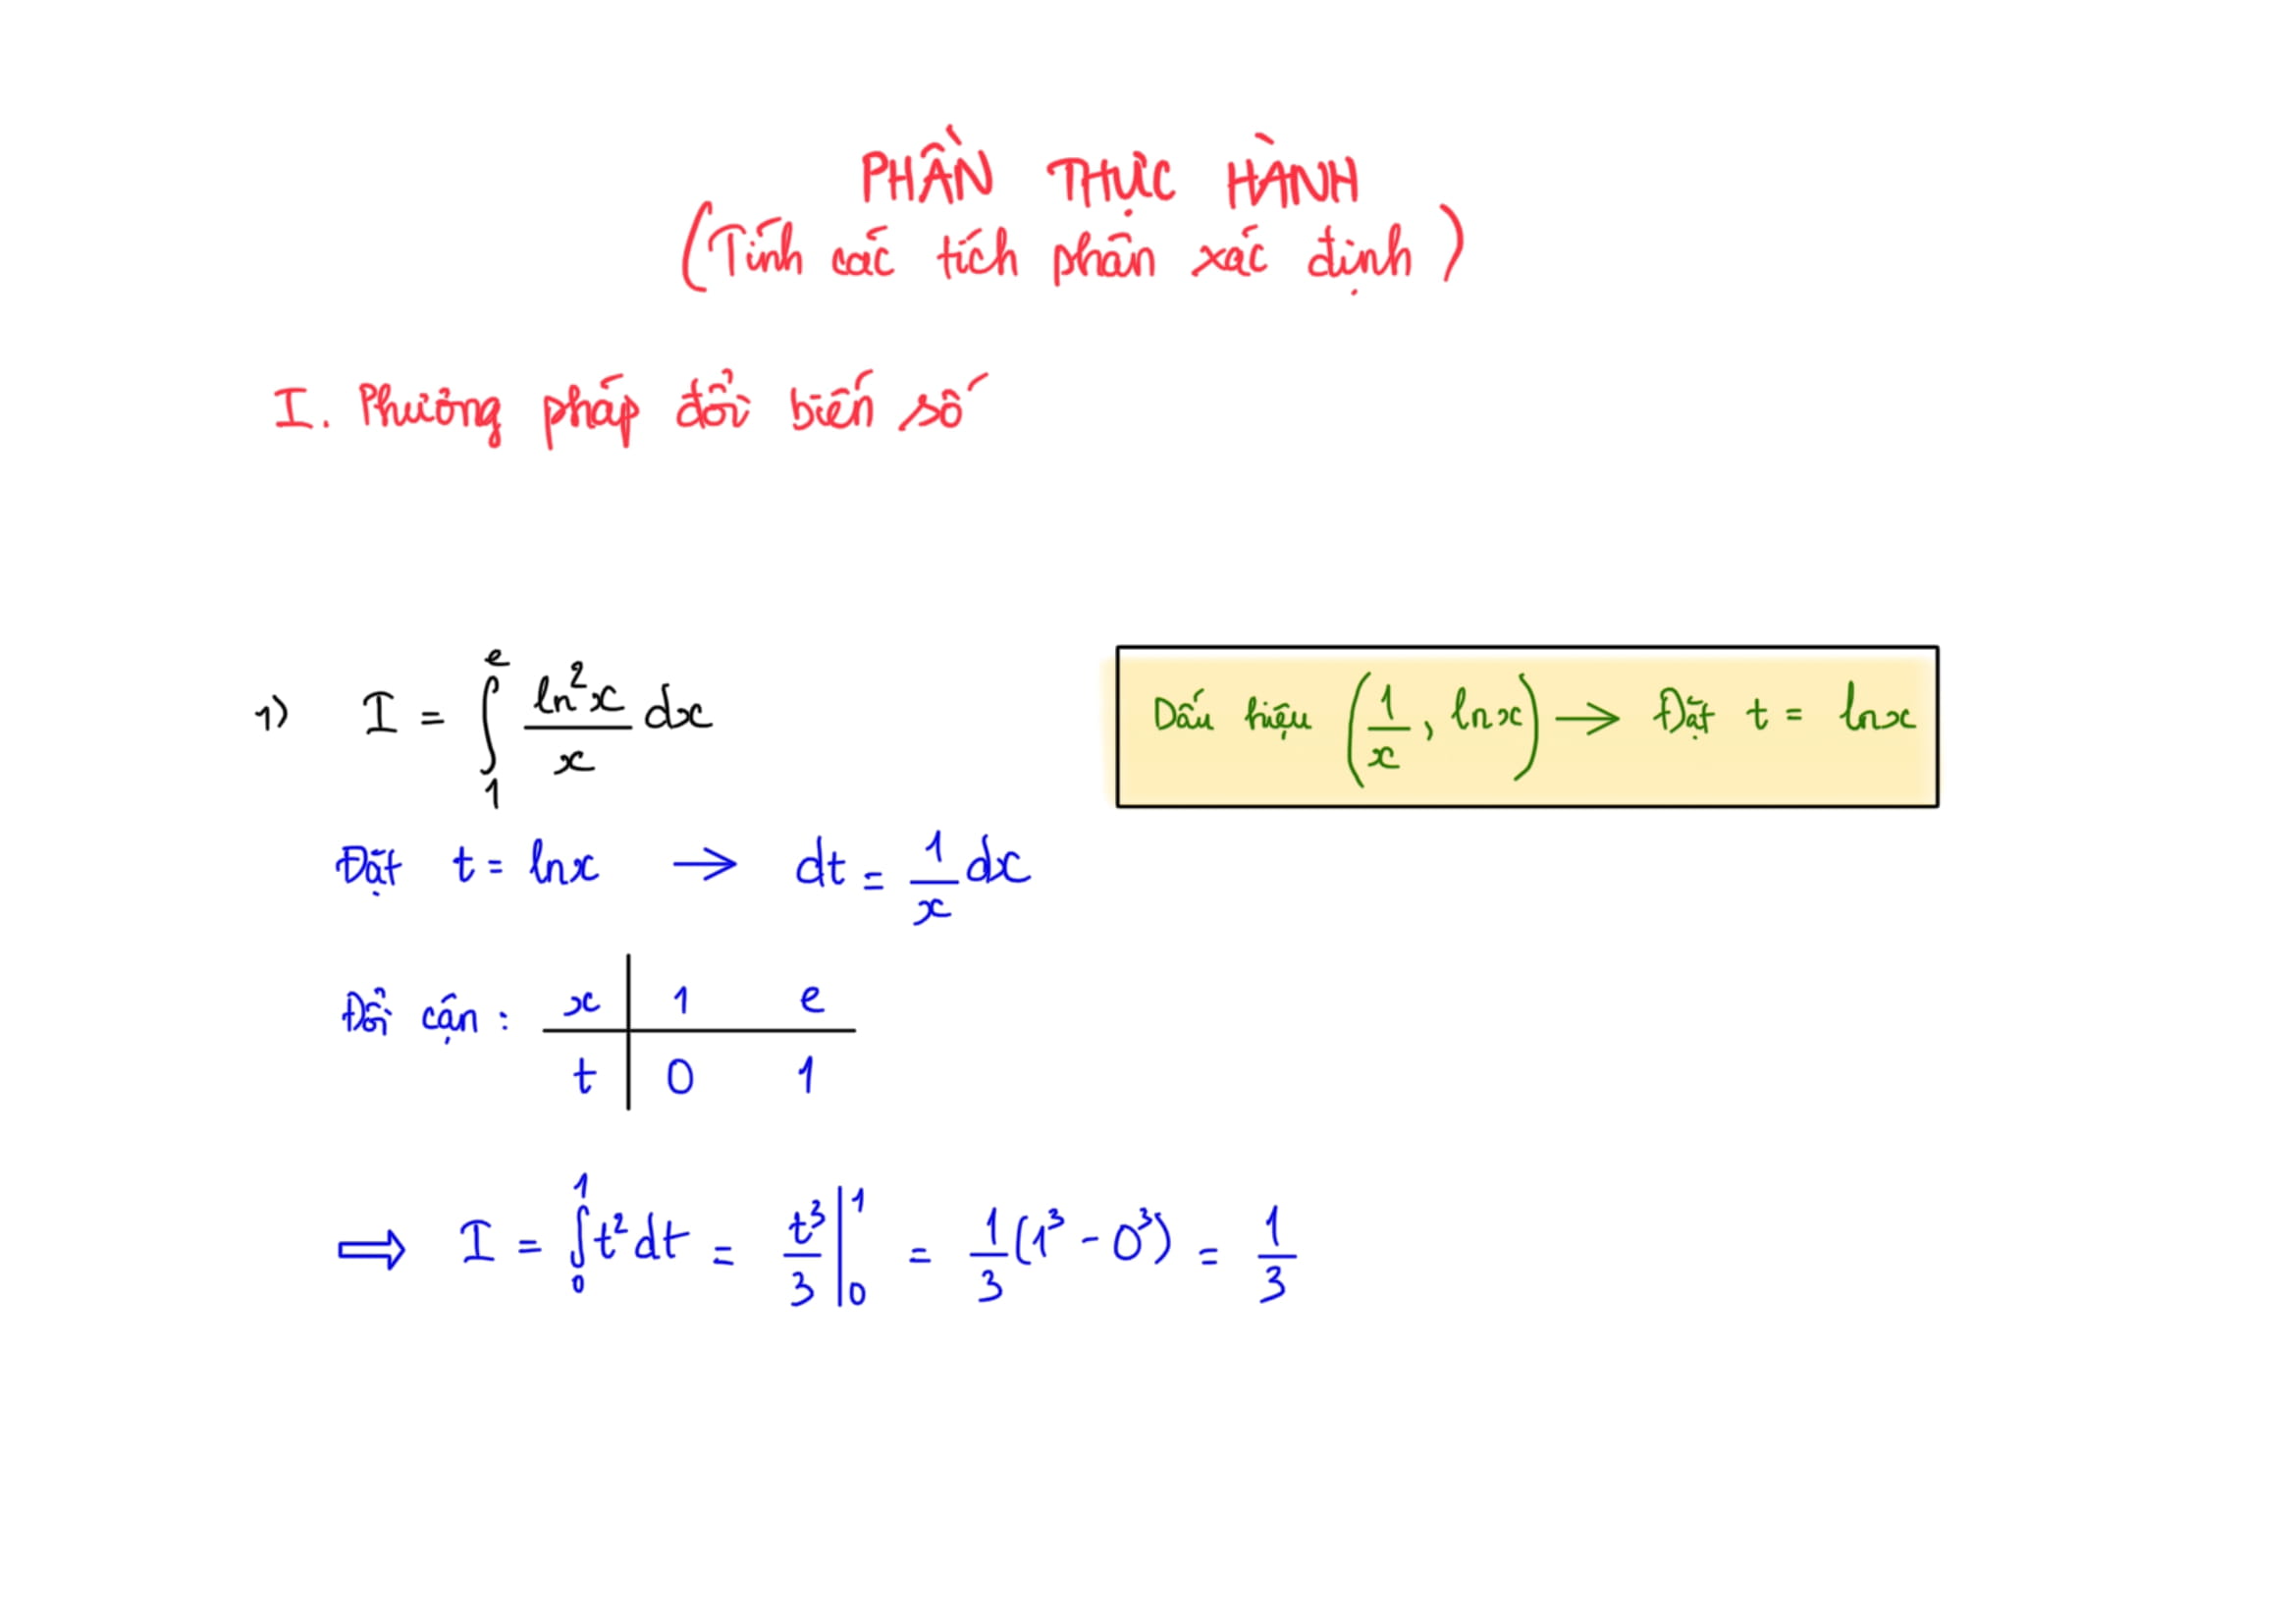 PHẦN THỰC HÀNH
(Tính các tích phân xác định)
I. Phương pháp đổi biến số
1) I = ∫₁ᵉ ln²x / x dx
Dấu hiệu (1/x, lnx) → Đặt t = lnx
Đặt t = lnx → dt = 1/x dx
Đổi cận : x | 1 e
t | 0 1
⇒ I = ∫₀¹ t² dt = t³/3 |₀¹ = 1/3 (1³ - 0³) = 1/3